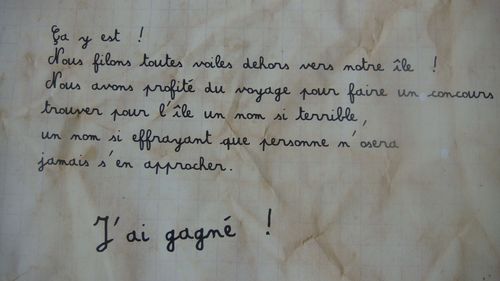 Ça y est !
Nous filons toutes voiles dehors vers notre île !
Nous avons profité du voyage pour faire un concours
trouver pour l'île un nom si terrible,
un nom si effrayant que personne n'osera
jamais s'en approcher.
J'ai gagné !